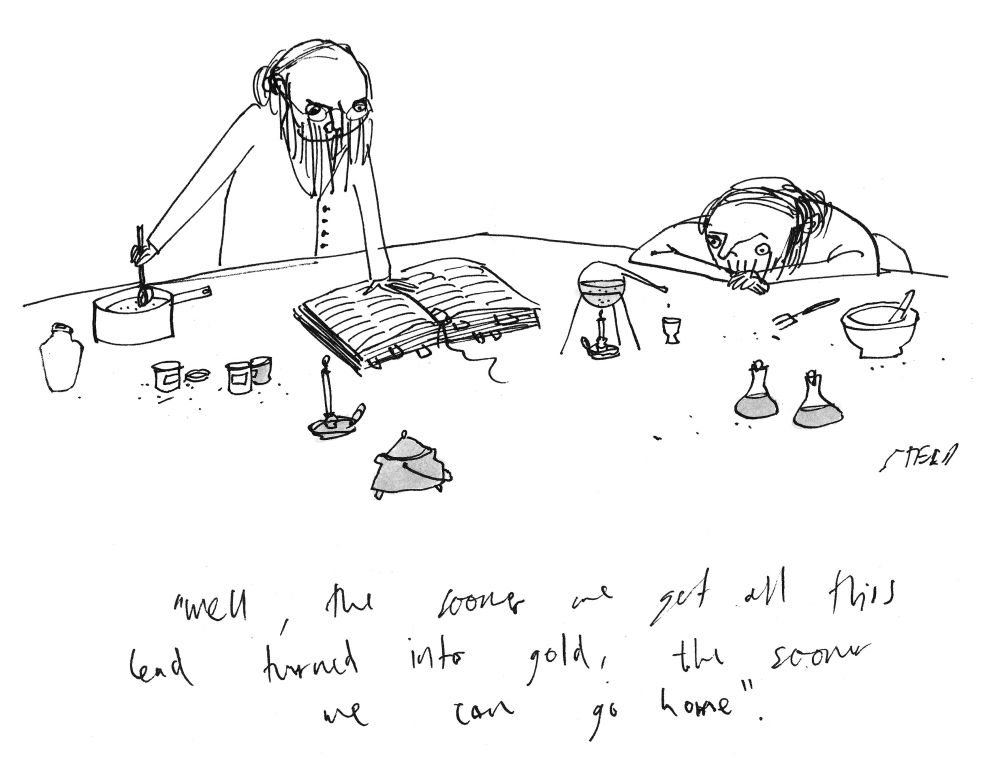 STEED
"well, the sooner we get all this
lead turned into gold, the sooner
we can go home".